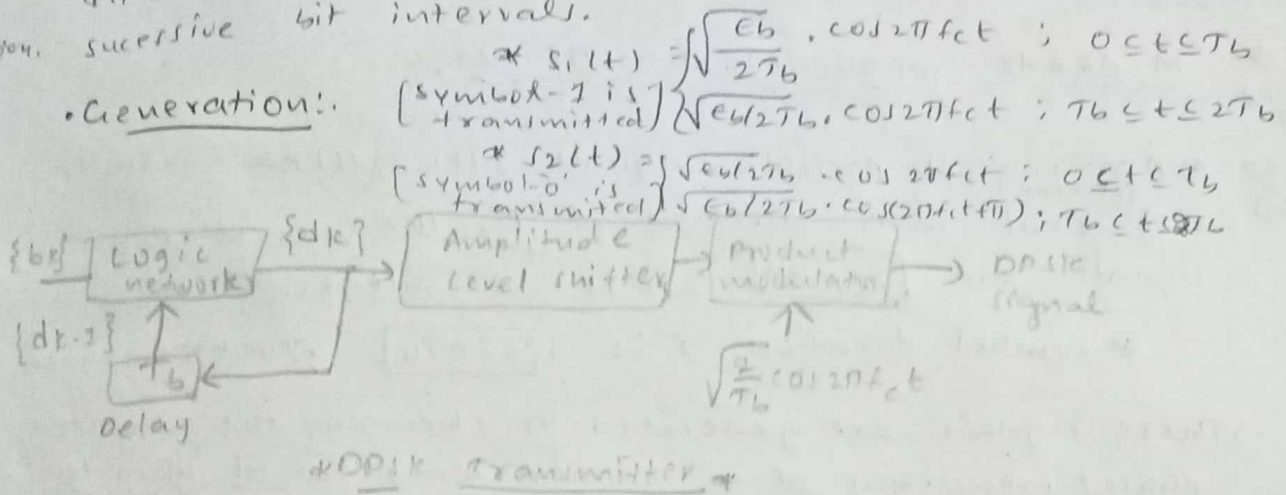 sucessive bit intervals.
* S₁(t) = { √(Eb/2Tb) . cos2πfct ; 0 ≤ t ≤ Tb
• Generation:. [symbol-1 is transmitted] √(Eb/2Tb) . cos2πfct ; Tb ≤ t ≤ 2Tb
* S2(t) = { √(Eb/2Tb) . cos 2πfct ; 0 ≤ t ≤ Tb
[symbol-'0' is transmitted] √(Eb/2Tb) . cos(2πfct+π) ; Tb ≤ t ≤ 2Tb
{bk} Logic network {dk} Amplitude Level shifter Product modulator DPSK signal
{dk-1}
Tb
√(2/Tb) cos2πfct
Delay
*DPSK transmitter*